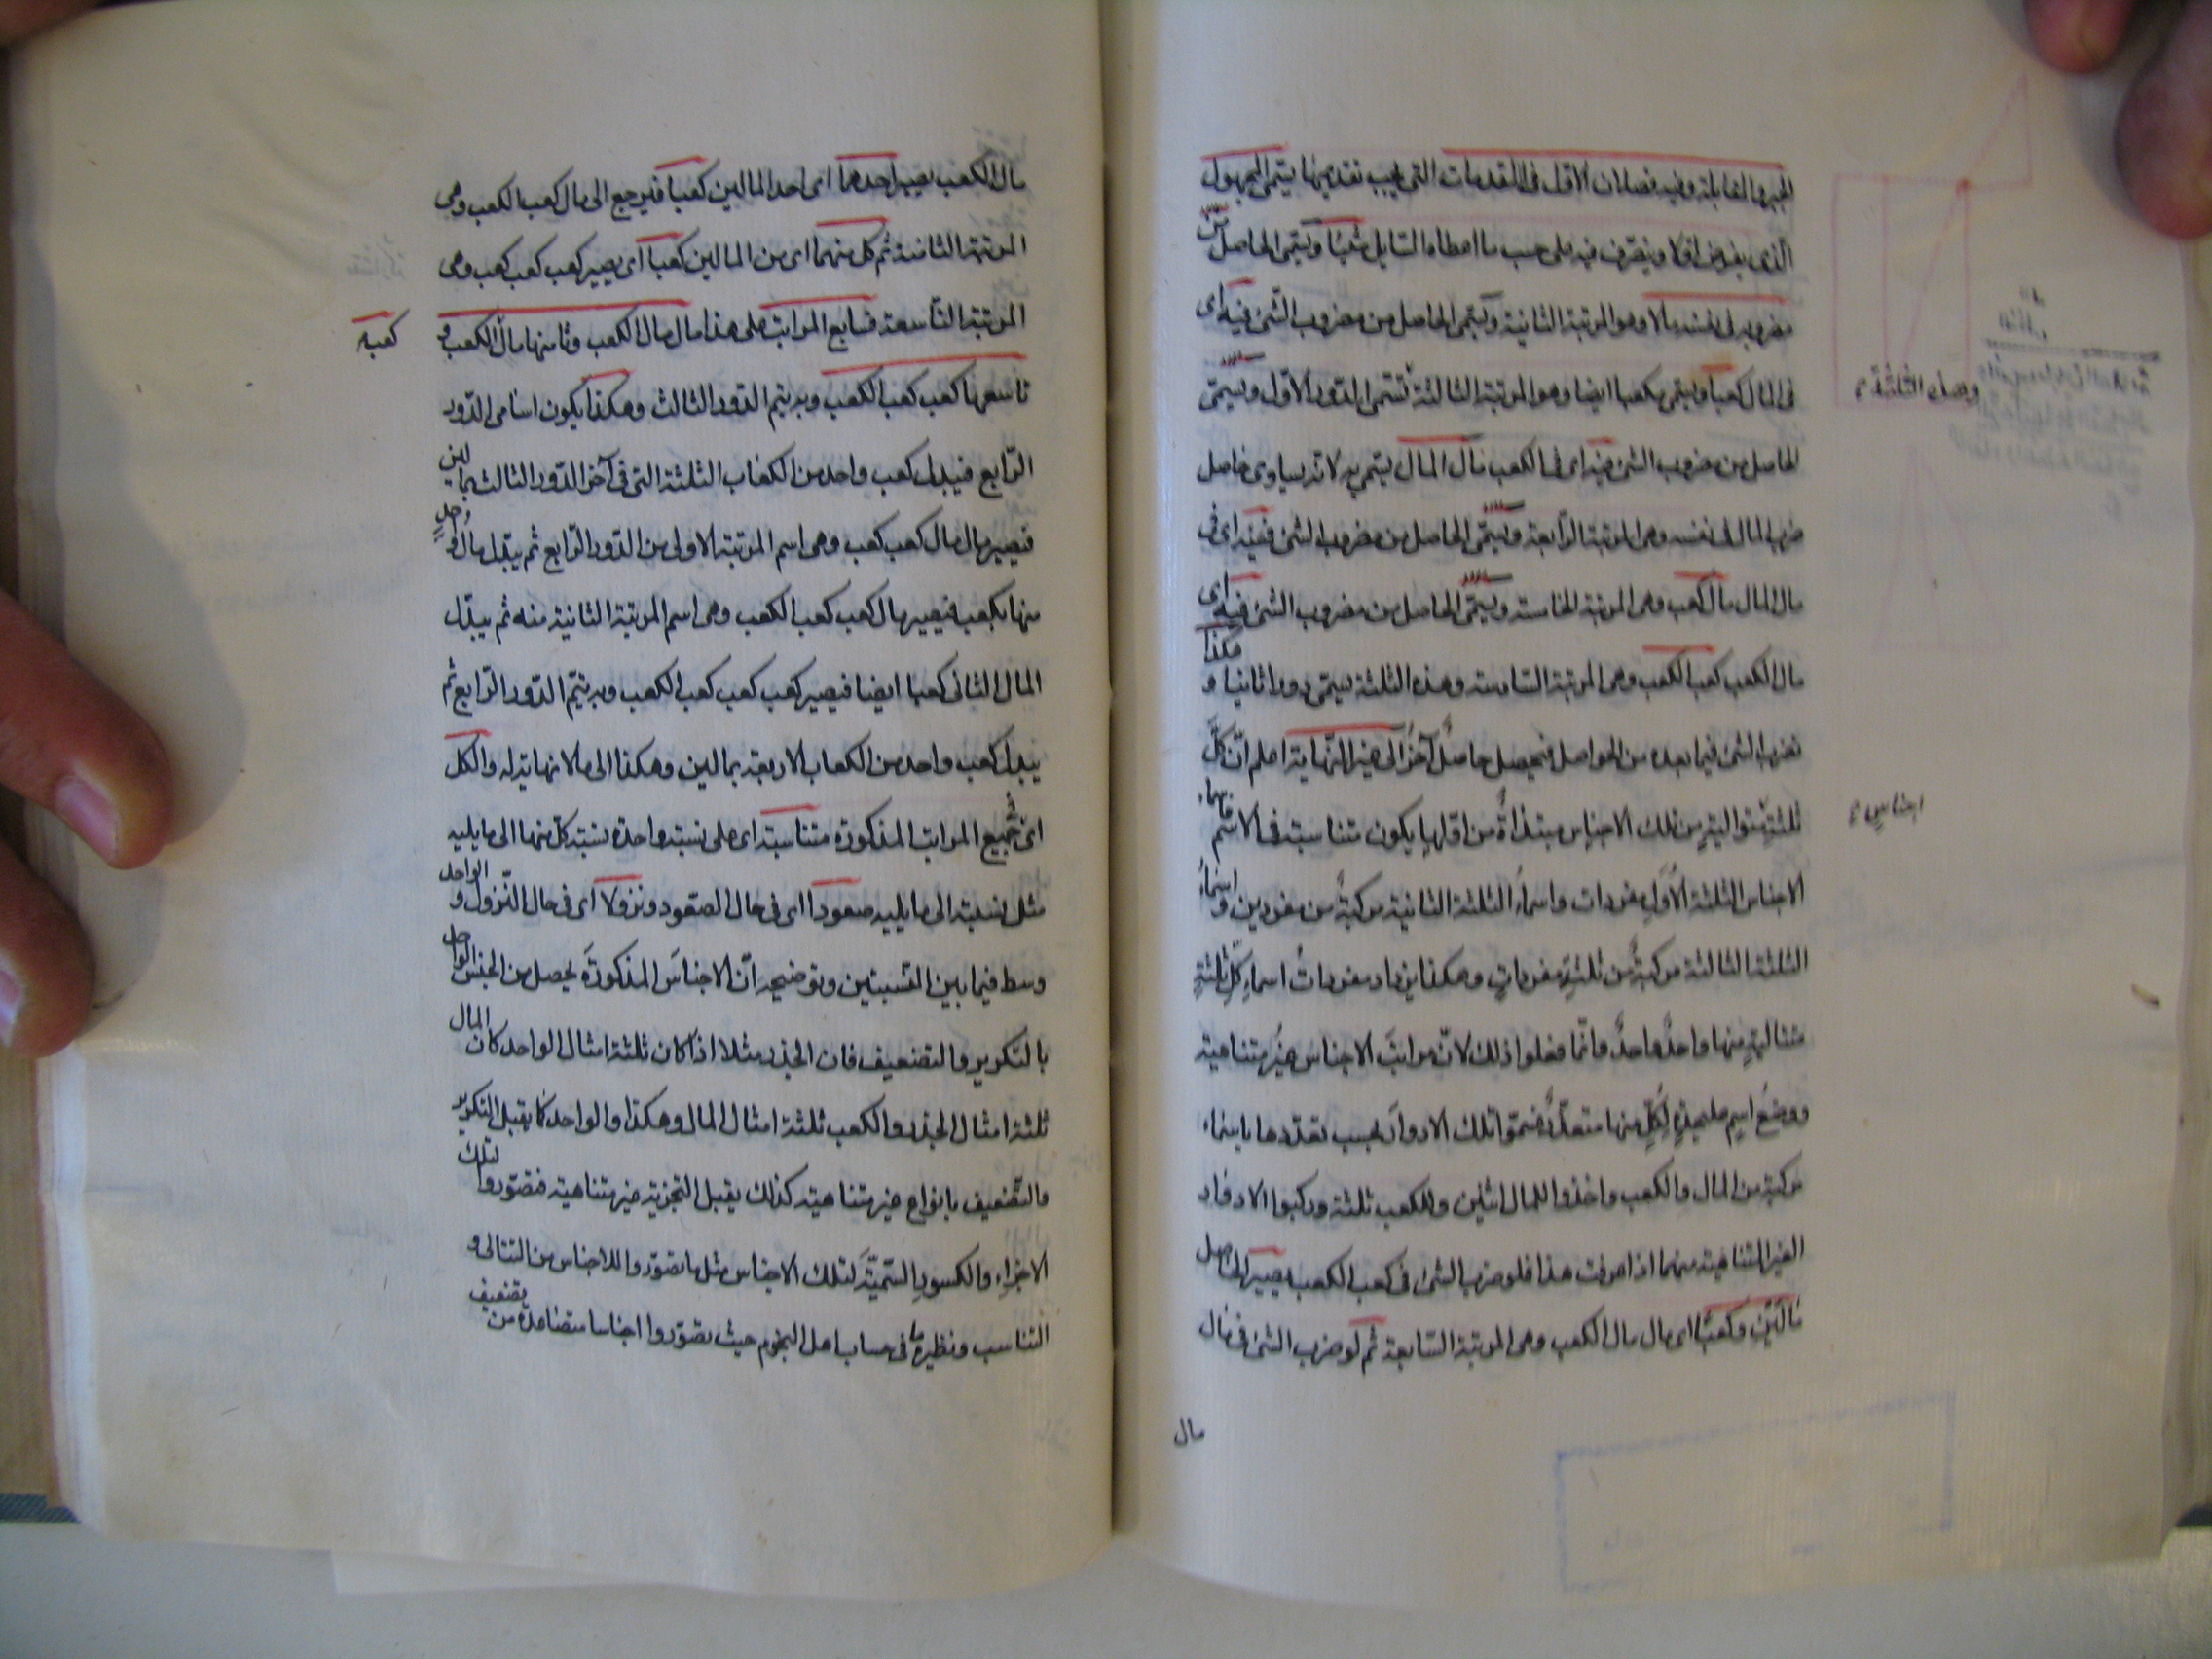 الجبر والمقابلة وفيه فصلان الاول فى المقدمات التى يجب تقديمها يسمى المجهول
الذى يفرض اولا ويتصرف فيه على حسب ما اعطاه السايل شيئا ويسمى الحاصل من
مضروبه فى نفسه مالا وهو المرتبة الثانية ويسمى الحاصل من مضروب الشئ فيه اى
فى المال كعبا ويسمى مكعبا ايضا وهو المرتبة الثالثة تسمى الدور الاول ويسمى
وهذه الثلثة
الحاصل من ضروب الشئ فيه اى فى الكعب مال المال يسمى به لانه يساوى حاصل
ضرب المال فى نفسه وهى المرتبة الرابعة ويسمى الحاصل من مضروب الشئ فيه اى فى
مال المال مال كعب وهى المرتبة الخامسة ويسمى الحاصل من مضروب الشئ فيه اى
مال الكعب كعب الكعب وهى المرتبة السادسة وهذه الثلثة يسمى دورا ثانيا و هكذا
تضرب الشئ فيما بعده من الحواصل فيحصل حاصل آخر الى غير النهاية اعلم ان كل
اجناس
ثلثة متوالية من تلك الاجناس مبتدأة من اولها يكون متناسبة فى الاسم فاسماء
الاجناس الثلثة الاول مفردات واسماء الثلثة الثانية مركبة من مفردين و اسماء
الثلثة الثالثة مركبة من ثلثة مفردات وهكذا يزداد مفردات اسماء كل ثلثة
متتالية منها واحدا واحدا وانما فعلوا ذلك لان مراتب الاجناس غير متناهية
ووضع اسم عليحدة لكل منها متعذر فسموا تلك الادوار بحسب تعددها باسماء
مركبة من المال والكعب واخذوا للمال اثنين وللكعب ثلثة وركبوا الادوار
الغير المتناهية منهما اذا عرفت هذا فلو ضرب الشئ فى كعب الكعب يصير الحاصل
مالين وكعبا اى مال مال الكعب وهى المرتبة السابعة ثم لو ضرب الشئ فى مال
مال
مال الكعب يصير احدهما اى احد المالين كعبا فيرجع الى مال كعب الكعب وهى
المرتبة الثامنة ثم كل منهما اى من المالين كعبا اى يصير كعب كعب كعب وهى
المرتبة التاسعة فسابع المراتب على هذا مال مال الكعب وثامنها مال الكعب و
كعبه
تاسعها كعب كعب الكعب وبه يتم الدور الثالث وهكذا يكون اسامى الدور
الرابع فيبدل كعب واحد من الكعاب الثلثة التى فى آخر الدور الثالث بمالين
فيصير مال مال كعب كعب وهى اسم المرتبة الاولى من الدور الرابع ثم يبدل مال واحد
منها بكعب فيصير مال كعب كعب الكعب وهى اسم المرتبة الثانية منه ثم يبدل
المال الثانى كعبا ايضا فيصير كعب كعب كعب الكعب وبه يتم الدور الرابع ثم
يبدل كعب واحد من الكعاب الاربعة بمالين وهكذا الى ما لا نهاية له والكل
اى جميع المراتب المذكورة متناسبة اى على نسبة واحدة نسبة كل منها الى ما يليه
مثل نسبته الى ما يليه صعودا اى فى حال الصعود ونزولا اى فى حال النزول و الواحد
وسط فيما بين النسبتين وتوضيحه ان الاجناس المذكورة يحصل من الجنس الواحد
بالتكرير والتضعيف فان الجذر مثلا اذا كان ثلثة امثال الواحد كان المال
ثلثة امثال الجذر والكعب ثلثة امثال المال وهكذا والواحد كما يقبل التكرير
والتضعيف بانواع غير متناهية كذلك يقبل التجزية غير متناهية فتصوروا لتلك
الاجزاء والكسور السمية لتلك الاجناس مثل ما تصوروا للاجناس من التتالى و
التناسب ونظيره ما فى حساب اهل النجوم حيث تصوروا اجناسا متصاعدة من تضعيف